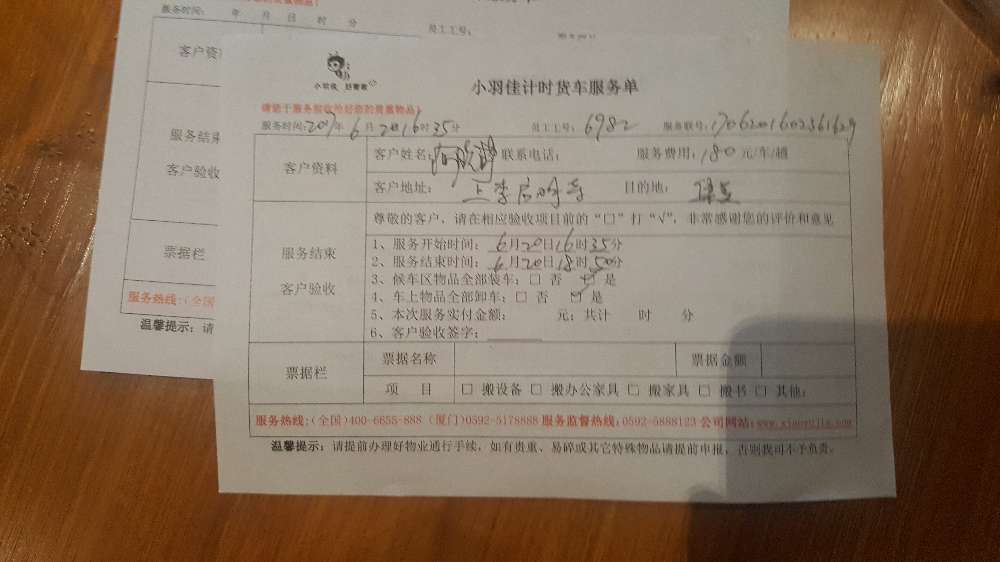 服务时间: 年 月 日 时 分
员工工号:
客户资
服务结束
客户验收
票据栏
服务热线:(全国
温馨提示: 请
小羽佳 好管家
小羽佳计时货车服务单
请您于服务前收拾好您的贵重物品!
服务时间:2017年6月2016时35分 员工工号: 6982 服务联号:
客户资料
客户姓名: 联系电话: 服务费用:180元/车/趟
客户地址: 上李 目的地:
尊敬的客户, 请在相应验收项目前的“口”打“√”, 非常感谢您的评价和意见
服务结束
客户验收
1、服务开始时间: 6月20日16时35分
2、服务结束时间: 6月20日18时50分
3、候车区物品全部装车: □ 否 ☑ 是
4、车上物品全部卸车: □ 否 ☑ 是
5、本次服务实付金额: 元; 共计 时 分
6、客户验收签字:
票据栏
票据名称 票据金额
项 目 □ 搬设备 □ 搬办公家具 □ 搬家具 □ 搬书 □ 其他:
服务热线:(全国)400-6655-888 (厦门)0592-5178888 服务监督热线:0592-5888123 公司网站:www.xiaoyujia.com
温馨提示: 请提前办理好物业通行手续, 如有贵重、易碎或其它特殊物品请提前申报, 否则我司不予负责。